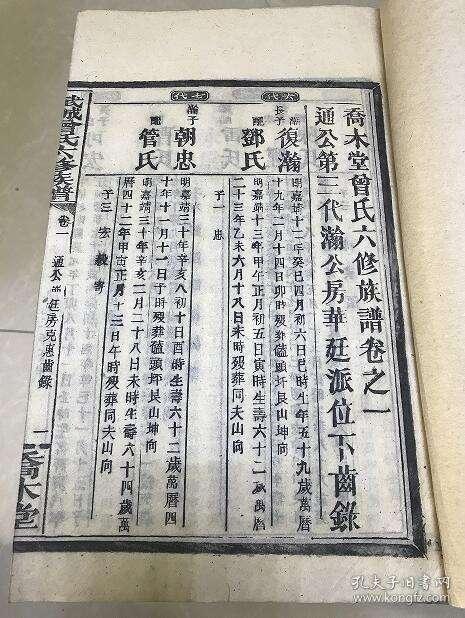 喬木堂曾氏六修族譜卷之一
通公第三代瀚公房華廷派位下齒錄
瀚長子 復瀚
明嘉靖十二年癸巳四月初六日巳時生年五十九歲萬曆
十九年二月十四日卯時歿葬磕頭坪艮山坤向
配 鄧氏
明嘉靖十三年甲午正月初五日寅時生壽六十二歲萬曆
二十三年乙未六月十八日未時歿葬同夫山向
子一 忠
瀚子 朝忠
明嘉靖三十年辛亥八月初十日酉時生壽六十二歲萬曆四
十年十一月十一日子時歿葬磕頭坪艮山坤向
配 管氏
明嘉靖三十年辛亥二月二十八日未時生壽六十四歲萬
曆四十二年甲寅正月十三日午時歿葬同夫山向
子三
武城曾氏六修族譜
卷一
通公 房克惠齒錄
一
喬木堂
孔夫子旧书网
www.kongfz.com